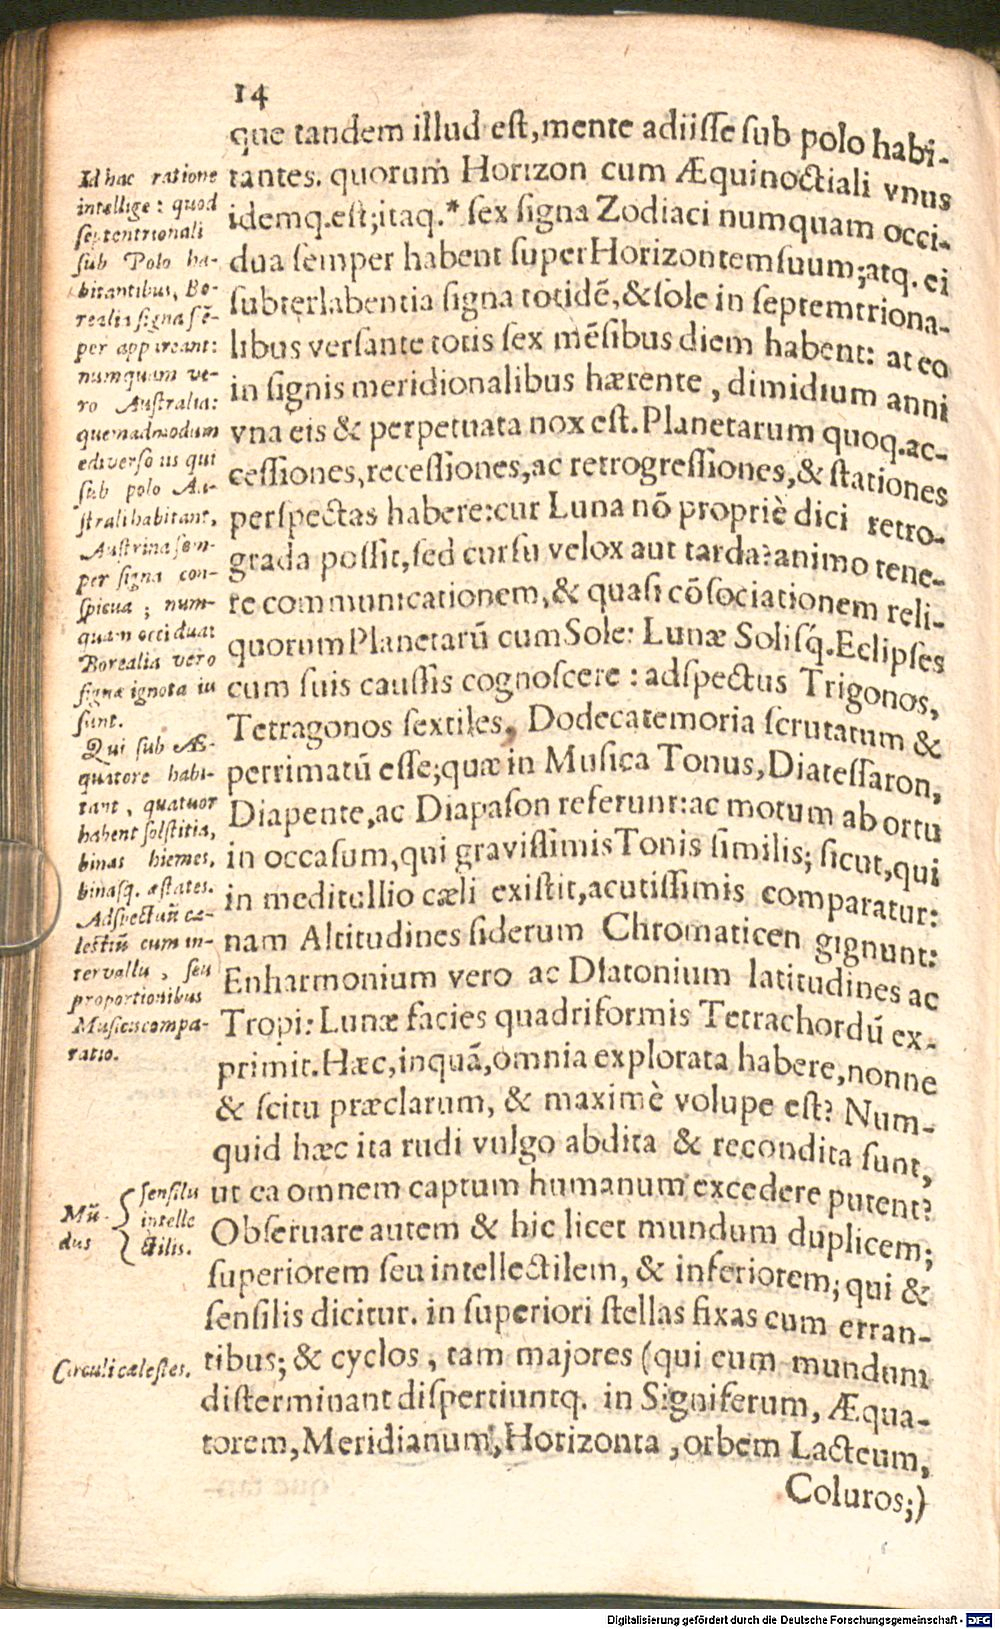 14
que tandem illud eſt, mente adiiſſe ſub polo habi-
tantes. quorum Horizon cum Æquinoctiali vnus
idemq. eſt; itaq.* ſex ſigna Zodiaci numquam occi-
dua ſemper habent ſuper Horizontem ſuum; atq. ei
ſubterlabentia ſigna totidē, & ſole in ſeptemtriona-
libus verſante totis ſex mēſibus diem habent: at eo
in ſignis meridionalibus hærente, dimidium anni
vna eis & perpetuata nox eſt. Planetarum quoq. ac-
ceſſiones, receſſiones, ac retrogreſſiones, & ſtationes
perſpectas habere: cur Luna nō propriè dici retro-
grada poſſit, ſed curſu velox aut tarda? animo tene-
re communicationem, & quaſi cōſociationem reli-
quorum Planetarū cum Sole: Lunæ Solisq́. Eclipſes
cum ſuis cauſſis cognoſcere: adſpectus Trigonos,
Tetragonos ſextiles, Dodecatemoria ſcrutatum &
perrimatū eſſe; quæ in Muſica Tonus, Diateſſaron,
Diapente, ac Diapaſon referunt: ac motum ab ortu
in occaſum, qui graviſſimis Tonis ſimilis; ſicut, qui
in meditullio cæli exiſtit, acutiſſimis comparatur:
nam Altitudines ſiderum Chromaticen gignunt:
Enharmonium vero ac Diatonium latitudines ac
Tropi: Lunæ facies quadriformis Tetrachordū ex-
primit. Hæc, inquā, omnia explorata habere, nonne
& ſcitu præclarum, & maximè volupe eſt? Num-
quid hæc ita rudi vulgo abdita & recondita ſunt,
ut ea omnem captum humanum excedere putent?
Obſeruare autem & hic licet mundum duplicem;
ſuperiorem ſeu intellectilem, & inferiorem; qui &
ſenſilis dicitur. in ſuperiori ſtellas fixas cum erran-
tibus; & cyclos, tam majores (qui eum mundum
diſterminant diſpertiuntq. in Signiferum, Æqua-
torem, Meridianum, Horizonta, orbem Lacteum,
Coluros;)
Id hac ratione
intellige: quod
ſeptentrionali
ſub Polo ha-
bitantibus, Bo-
realia ſigna ſē-
per appareant:
numquam ve-
ro Auſtralia:
quemadmodum
ediverſo iis qui
ſub polo Au-
ſtrali habitant,
Auſtrina ſem-
per ſigna con-
ſpicua; num-
quam occiduat
Borealia vero
ſigna ignota iis
ſunt.
Qui ſub Æ-
quatore habi-
tant, quatuor
habent ſolſtitia,
binas hiemes,
binasq. æſtates.
Adſpectuū cæ-
leſtiū cum in-
tervallis, ſeu
proportionibus
Muſicis compa-
ratio.
Mū-
dus
ſenſilis
intelle
ctilis.
Circuli cæleſtes.
Digitalisierung gefördert durch die Deutsche Forschungsgemeinschaft - DFG